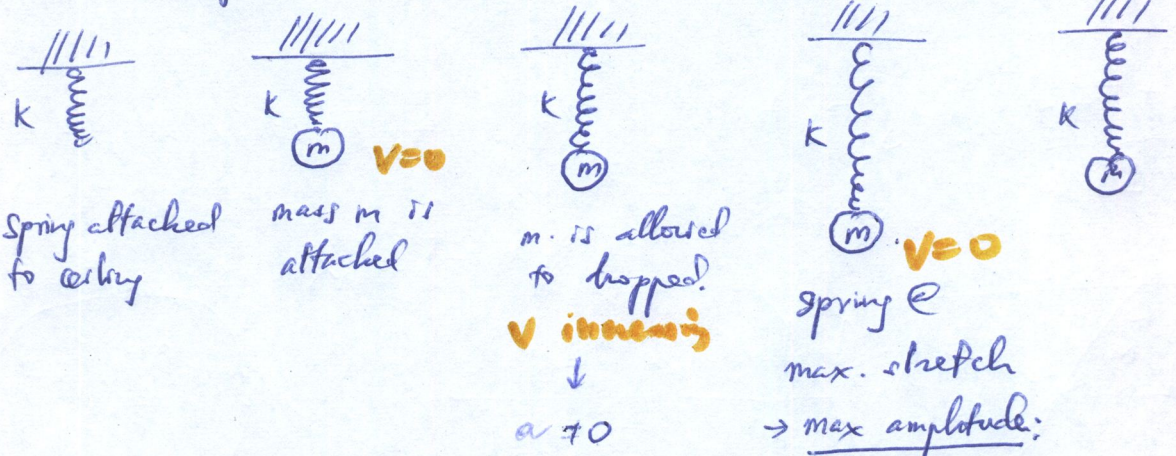 K
Spring attached
to ceiling
K
m
V=0
mass m is
attached
K
m
m. is allowed
to dropped.
V increasing
↓
a ≠0
K
m
V=0
spring @
max. stretch
→ max amplitude:
K
m